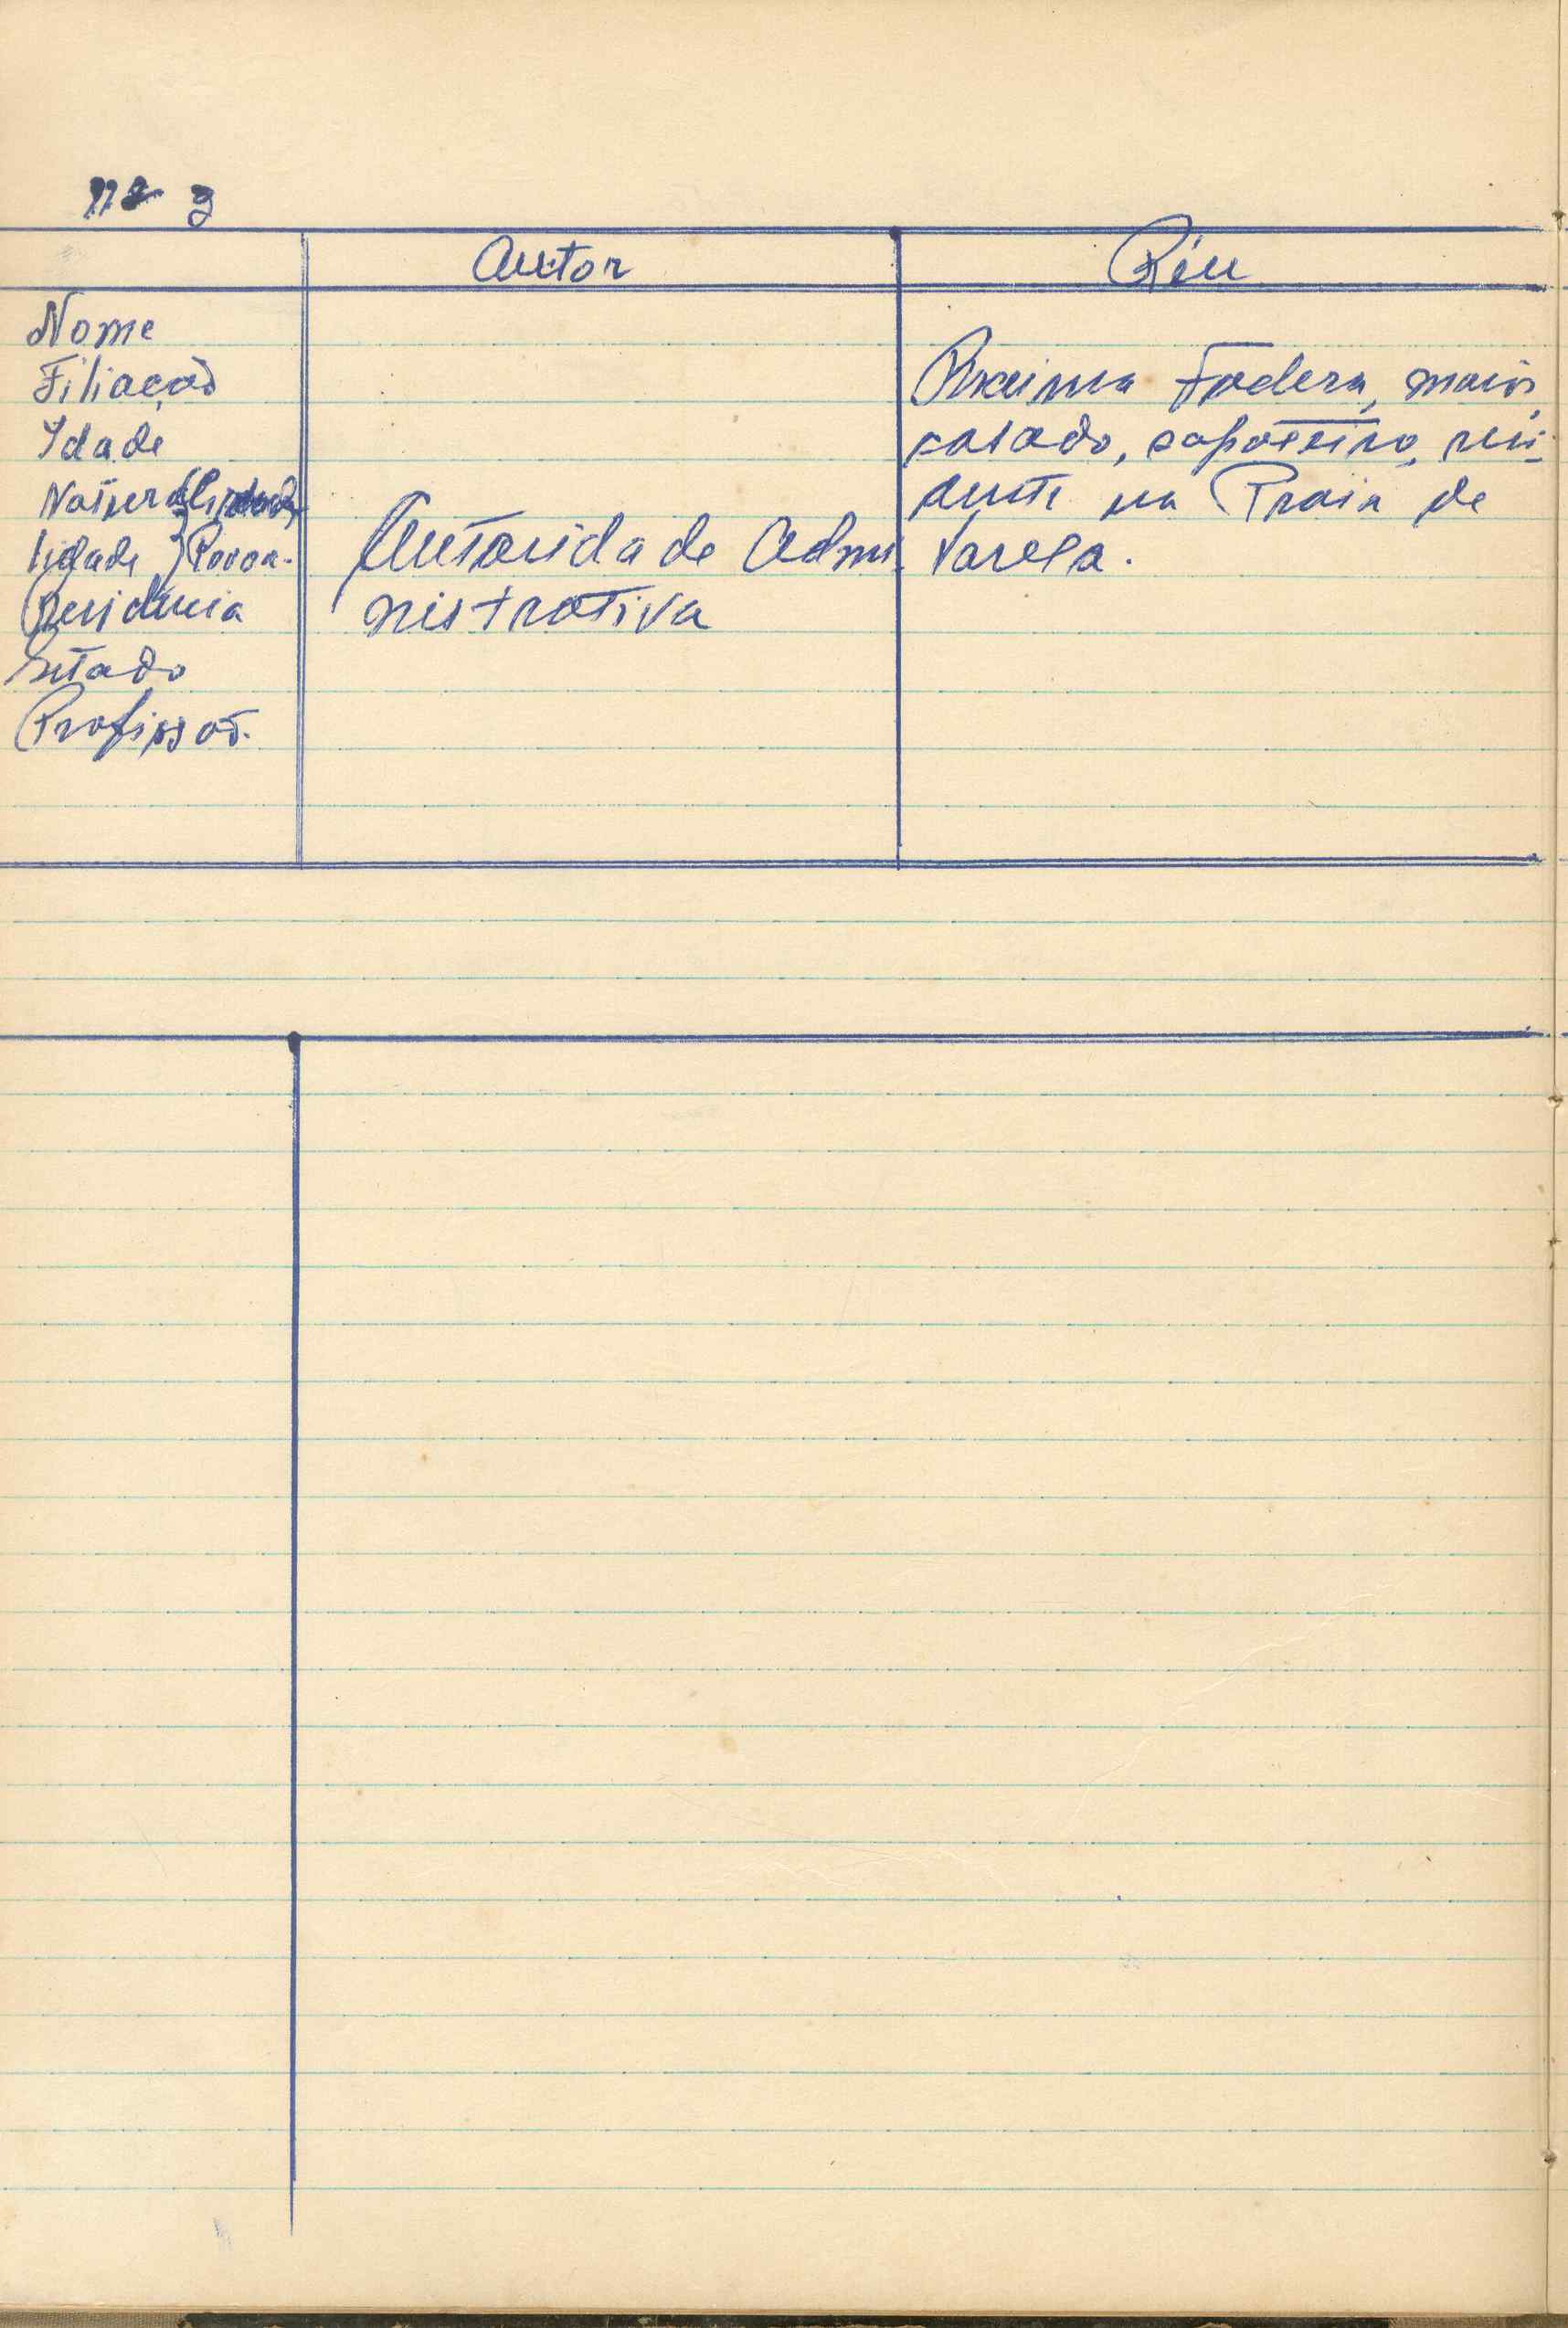 nº 3
Autor
Réu
Nome
Filiação
Idade
Natura
lidade } Povoa-
Residencia
Estado
Profissão.
Autoridade Admi
nistrativa
Fodera, maior,
casado, sapateiro, resi-
dente na Praia de
Varela.